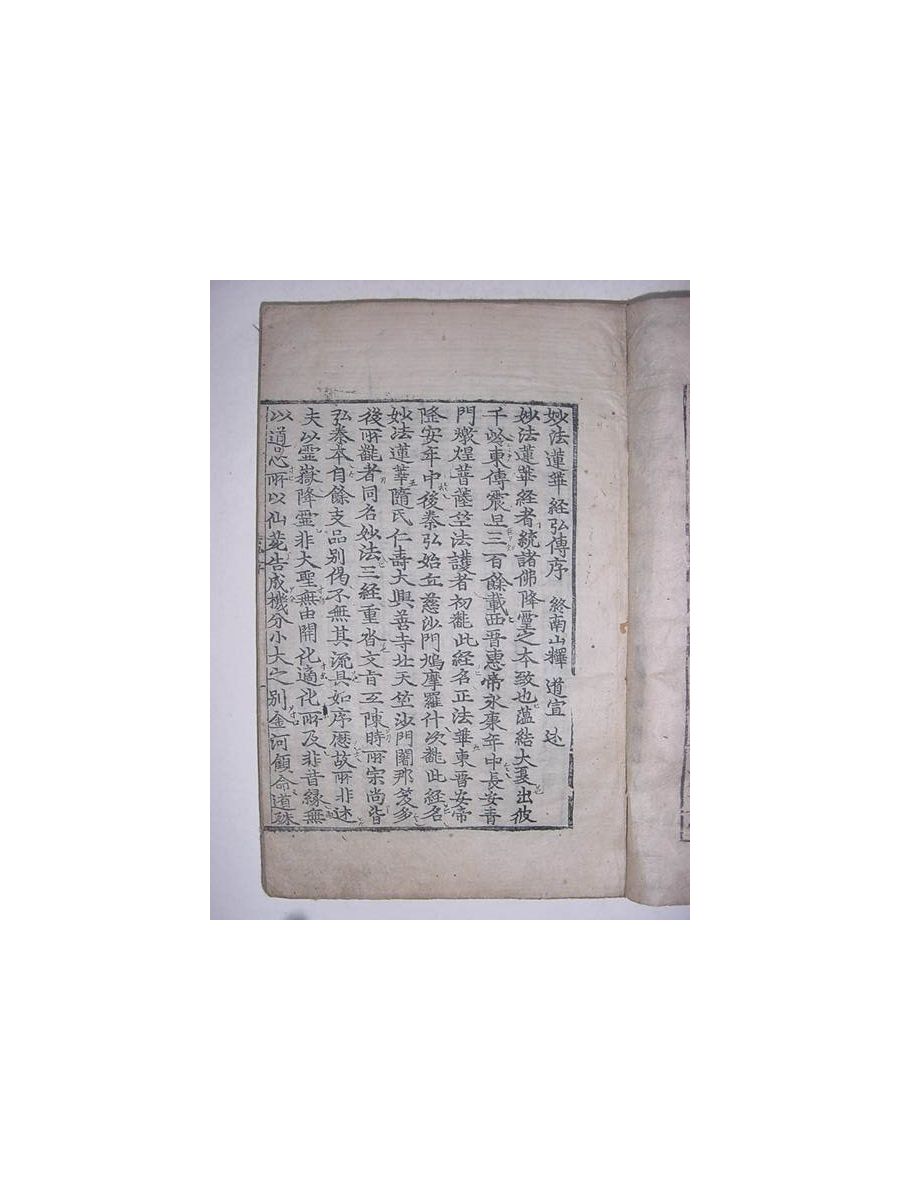 妙法蓮華經弘傳序 終南山釋 道宣 述
妙法蓮華経者統諸佛降霊之本致也蕰結大夏出彼
千齡東傳震旦三百餘載西晋惠帝永康年中長安青
門燉煌菩薩竺法護者初飜此経名正法華東晋安帝
隆安年中後秦弘始丘慈沙門鳩摩羅什次飜此経名
妙法蓮華隋氏仁壽大興善寺北天竺沙門闍那笈多
後所飜者同名妙法三経重沓文旨互陳時所宗尚皆
弘秦本自餘支品別偈不無其流具如序歷故所非述
夫以靈嶽降霊非大聖無由開化適化所及非昔縁無
以道心所以仙菀告成機分小大之別金河顧命道殊